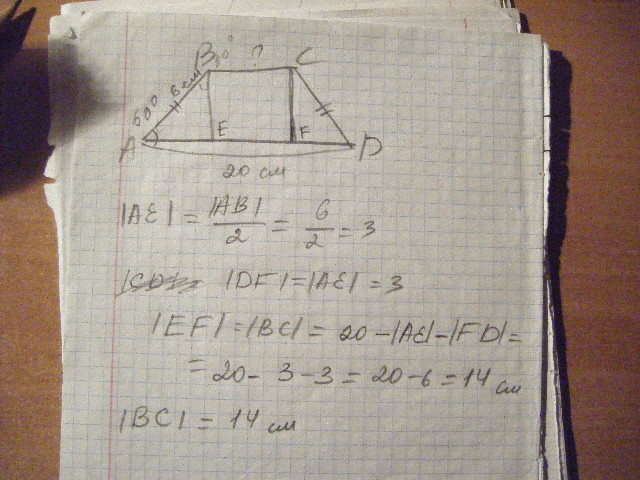 B 30° ? C
60° 6 см
A E F D
20 см
|AE| = |AB| / 2 = 6 / 2 = 3
|DF| = |AE| = 3
|EF| = |BC| = 20 - |AE| - |FD| =
= 20 - 3 - 3 = 20 - 6 = 14 см
|BC| = 14 см